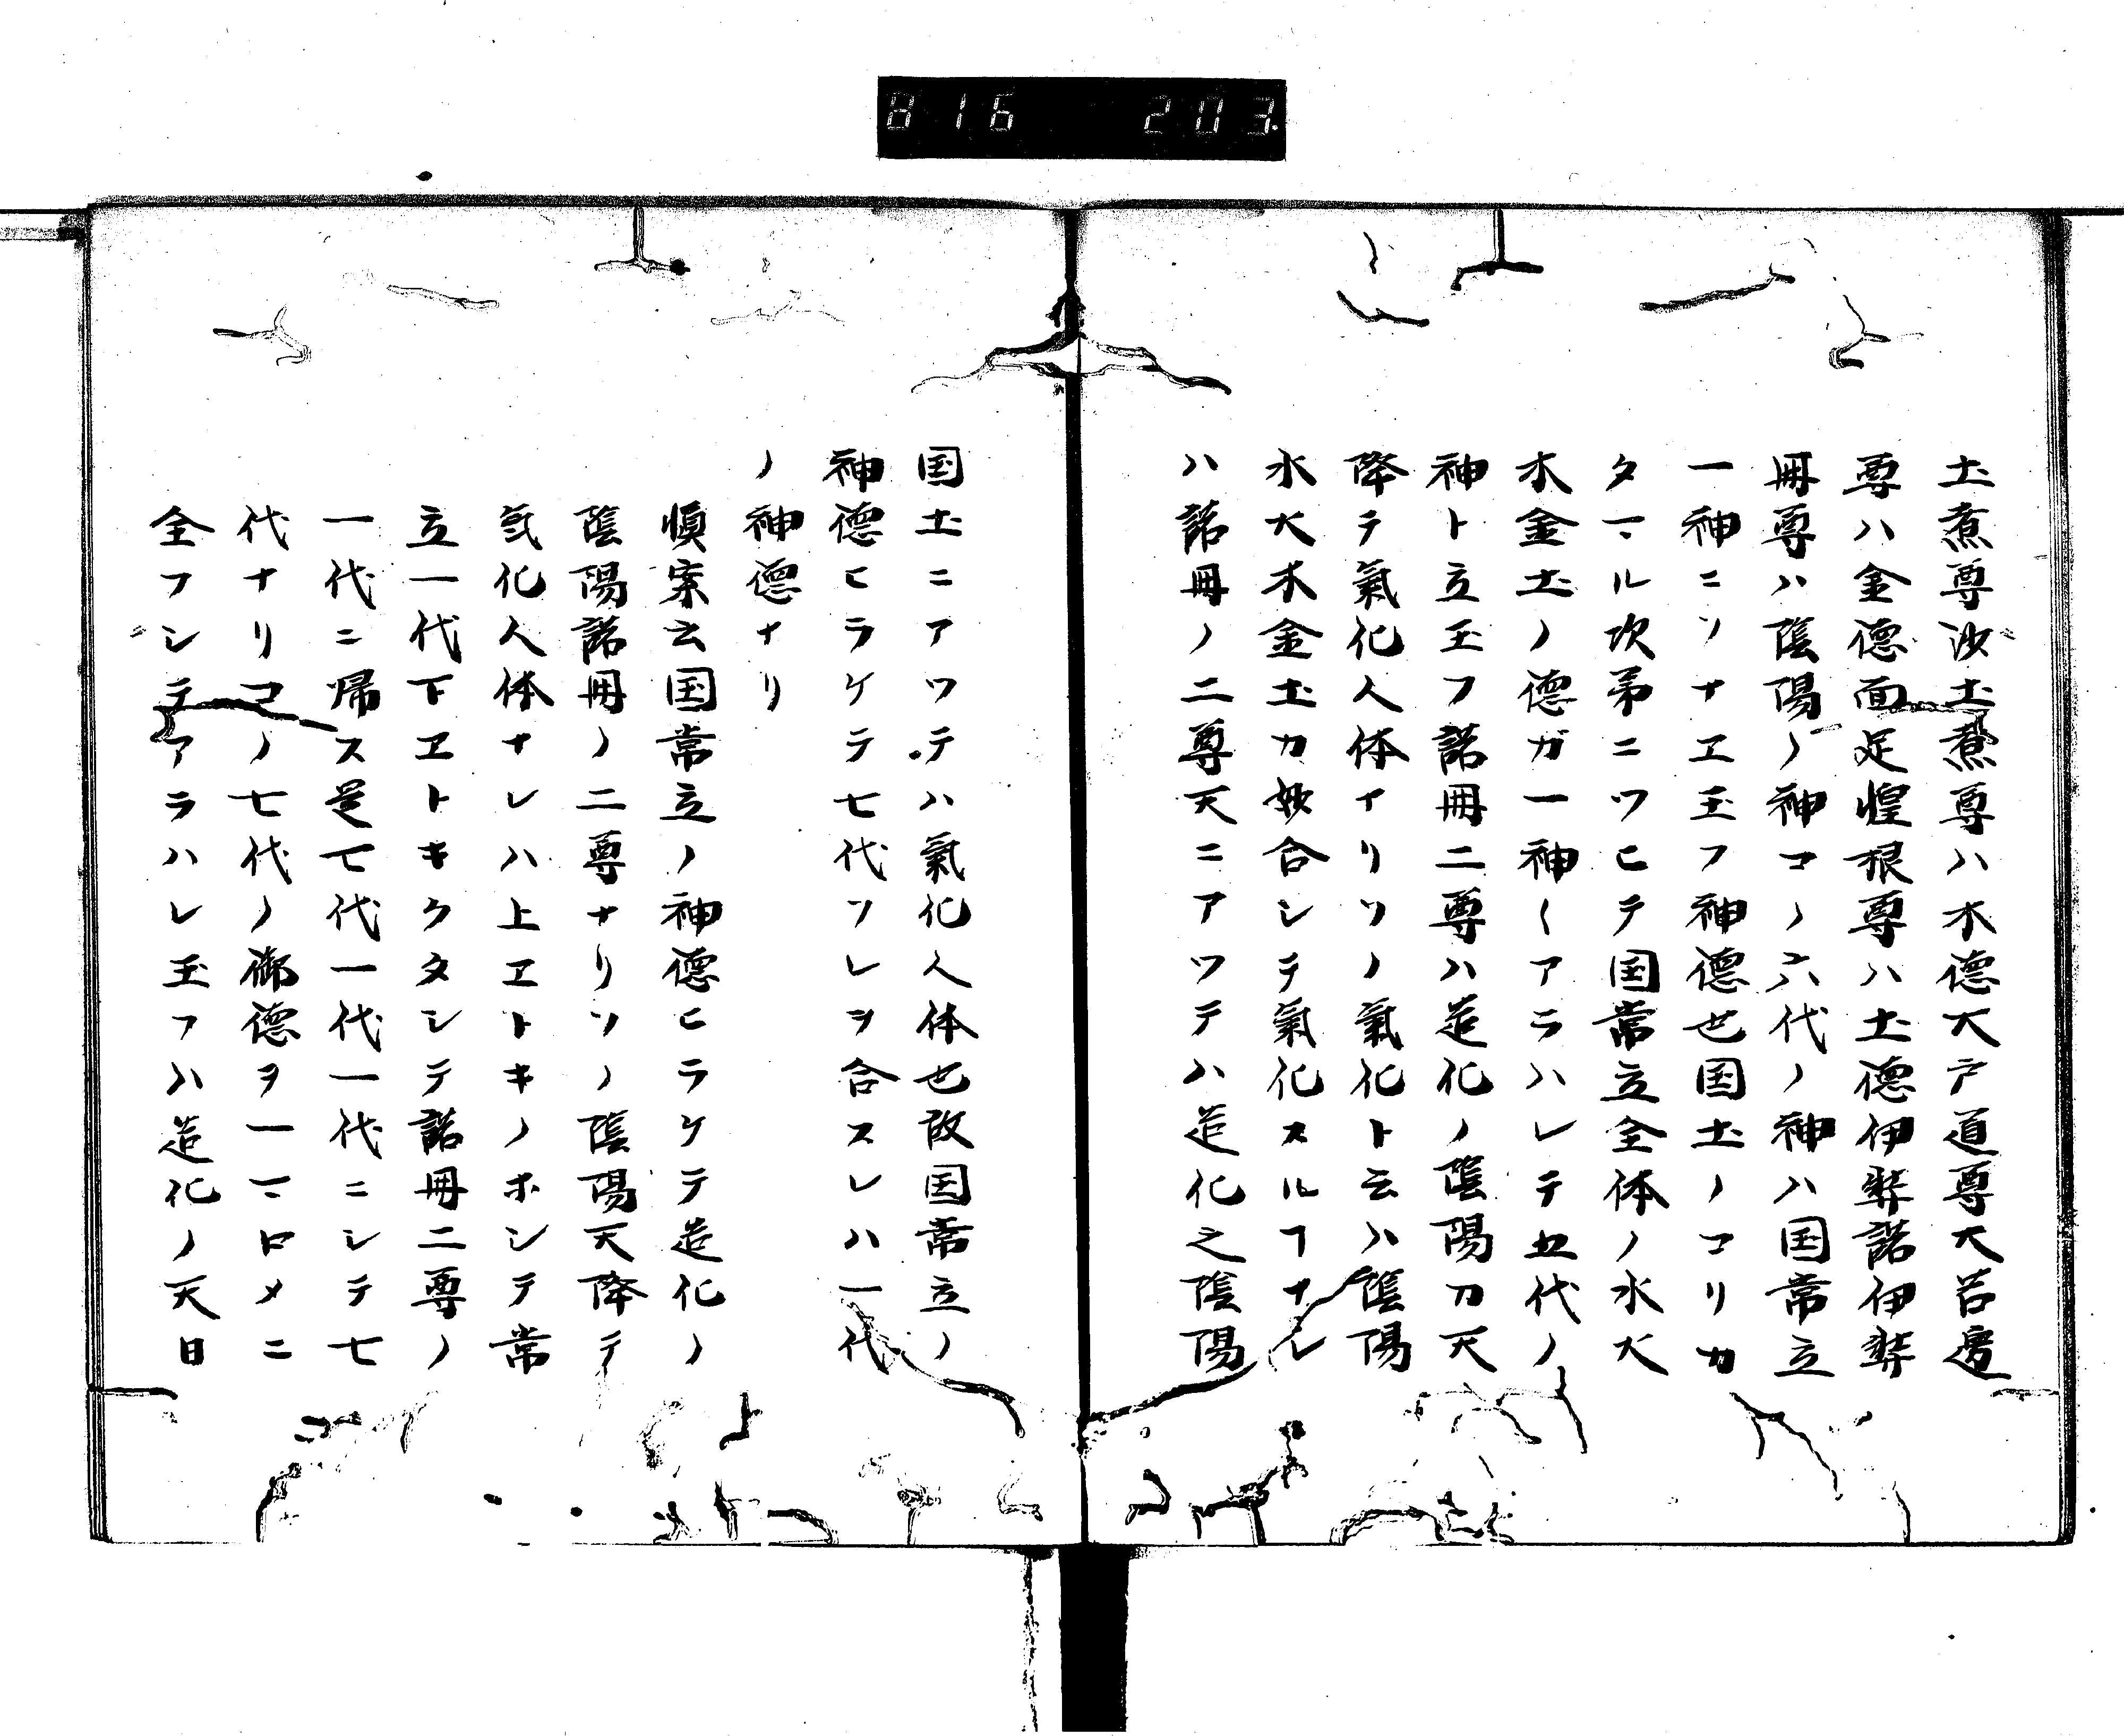 816 203.
土煮尊沙土煮尊ハ木德大戸道尊大苫邊
尊ハ金德面足惶根尊ハ土德伊弉諾伊弉
冊尊ハ陰陽ノ神コノ六代ノ神ハ国常立
一神ニソナヱ玉フ神德也国土ノコリカ
タマル次第ニツヒテ国常立全体ノ水火
木金土ノ德ガ一神〱アラハレテ五代ノ
神ト立玉フ諾冊二尊ハ造化ノ陰陽カ天
降テ氣化人体ナリソノ氣化ト云ハ陰陽
水火木金土カ妙合シテ氣化スルヿナレ
ハ諾冊ノ二尊天ニアツテハ造化之陰陽
国土ニアツテハ氣化人体也故国常立ノ
神德ヒラケテ七代ソレヲ合スレハ一代
ノ神德ナリ
慎案云国常立ノ神德ヒラケテ造化ノ
陰陽諾冊ノ二尊ナリソノ陰陽天降テ
氣化人体ナレハ上ヱトキノホシテ常
立一代下ヱトキクタシテ諾冊二尊ノ
一代ニ帰ス是七代一代一代ニシテ七
代ナリコノ七代ノ御德ヲ一マロメニ
全フシテアラハレ玉フハ造化ノ天日